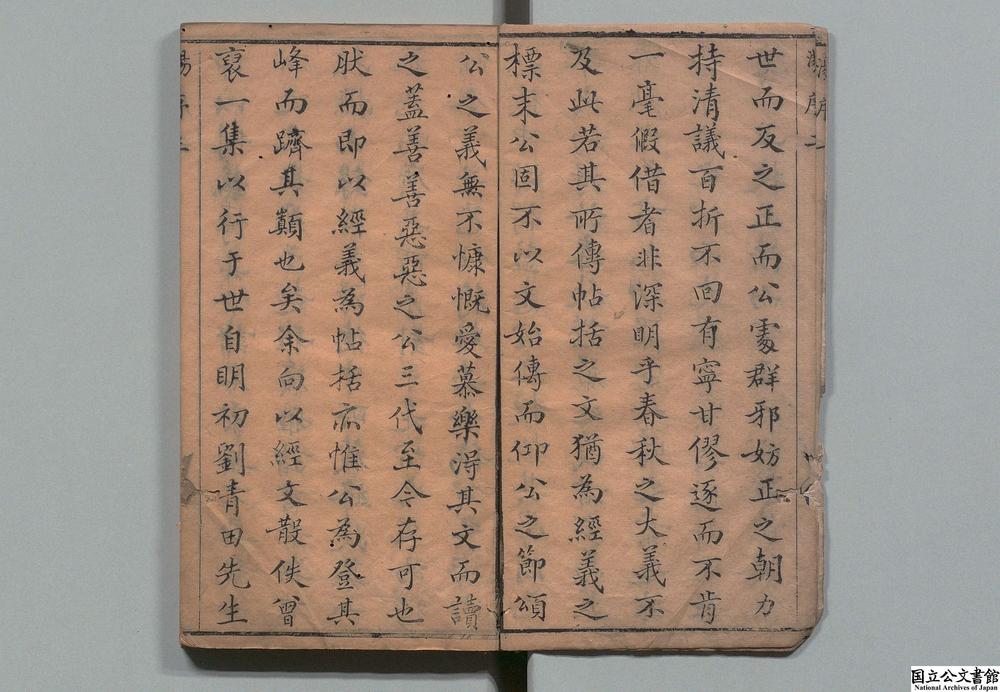 世而反之正而公處群邪妨正之朝力
持清議百折不回有寧甘僇逐而不肯
一毫假借者非深明乎春秋之大義不
及此若其所傳帖括之文猶為經義之
標末公固不以文始傳而仰公之節頌
公之義無不慷慨愛慕樂淂其文而讀
之蓋善善惡惡之公三代至今存可也
肰而即以經義為帖括亦惟公為登其
峰而躋其顛也矣余向以經文散佚曾
裒一集以行于世自明初劉青田先生
国立公文書館
National Archives of Japan